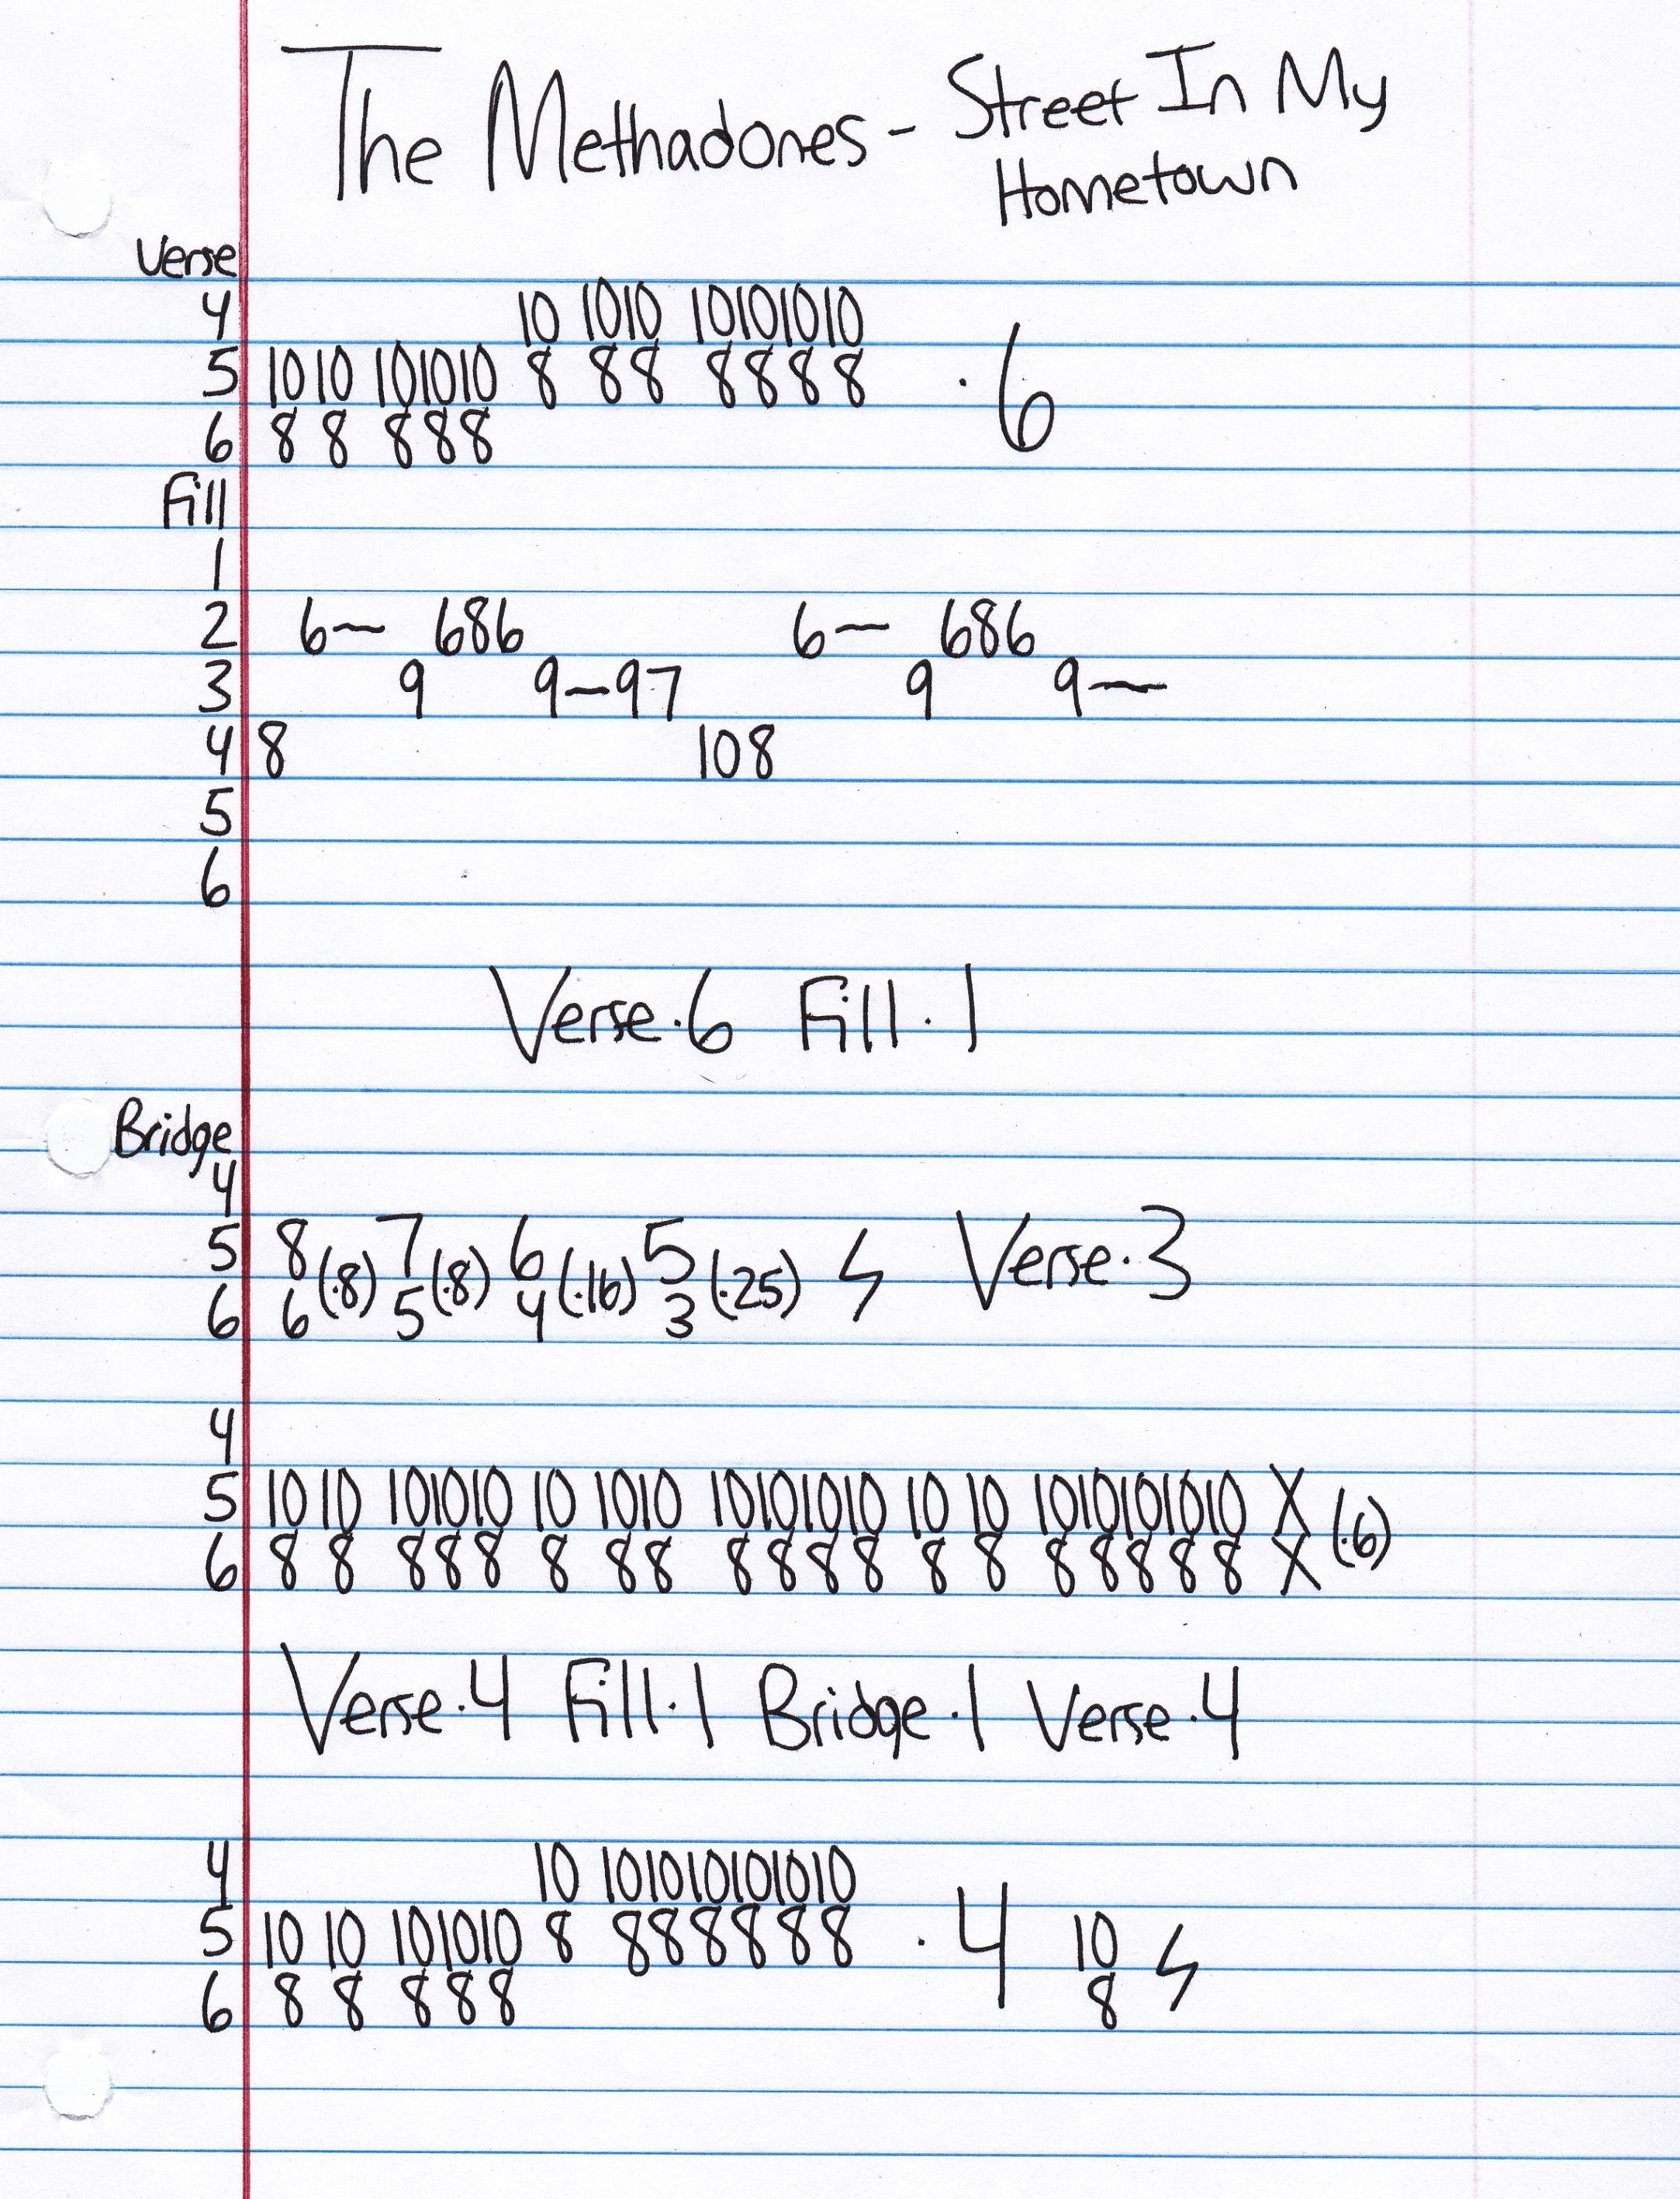 The Methadones - Street In My
Hometown
Verse
4 10 1010 10101010
5 1010 101010 8 88 8888 ·6
6 8 8 888
Fill
1
2 6— 686 6— 686
3 9 9-97 9 9—
4 8 108
5
6
Verse·6 Fill·1
Bridge
4
5 8 (·8) 7 (·8) 6 (·16) 5 (·25) ϟ Verse·3
6 6 5 4 3
4
5 10 10 101010 10 1010 10101010 10 10 1010101010 X (·6)
6 8 8 888 8 88 8888 8 8 88888 X
Verse·4 Fill·1 Bridge·1 Verse·4
4 10 101010101010
5 10 10 101010 8 888888 ·4 10 ϟ
6 8 8 888 8